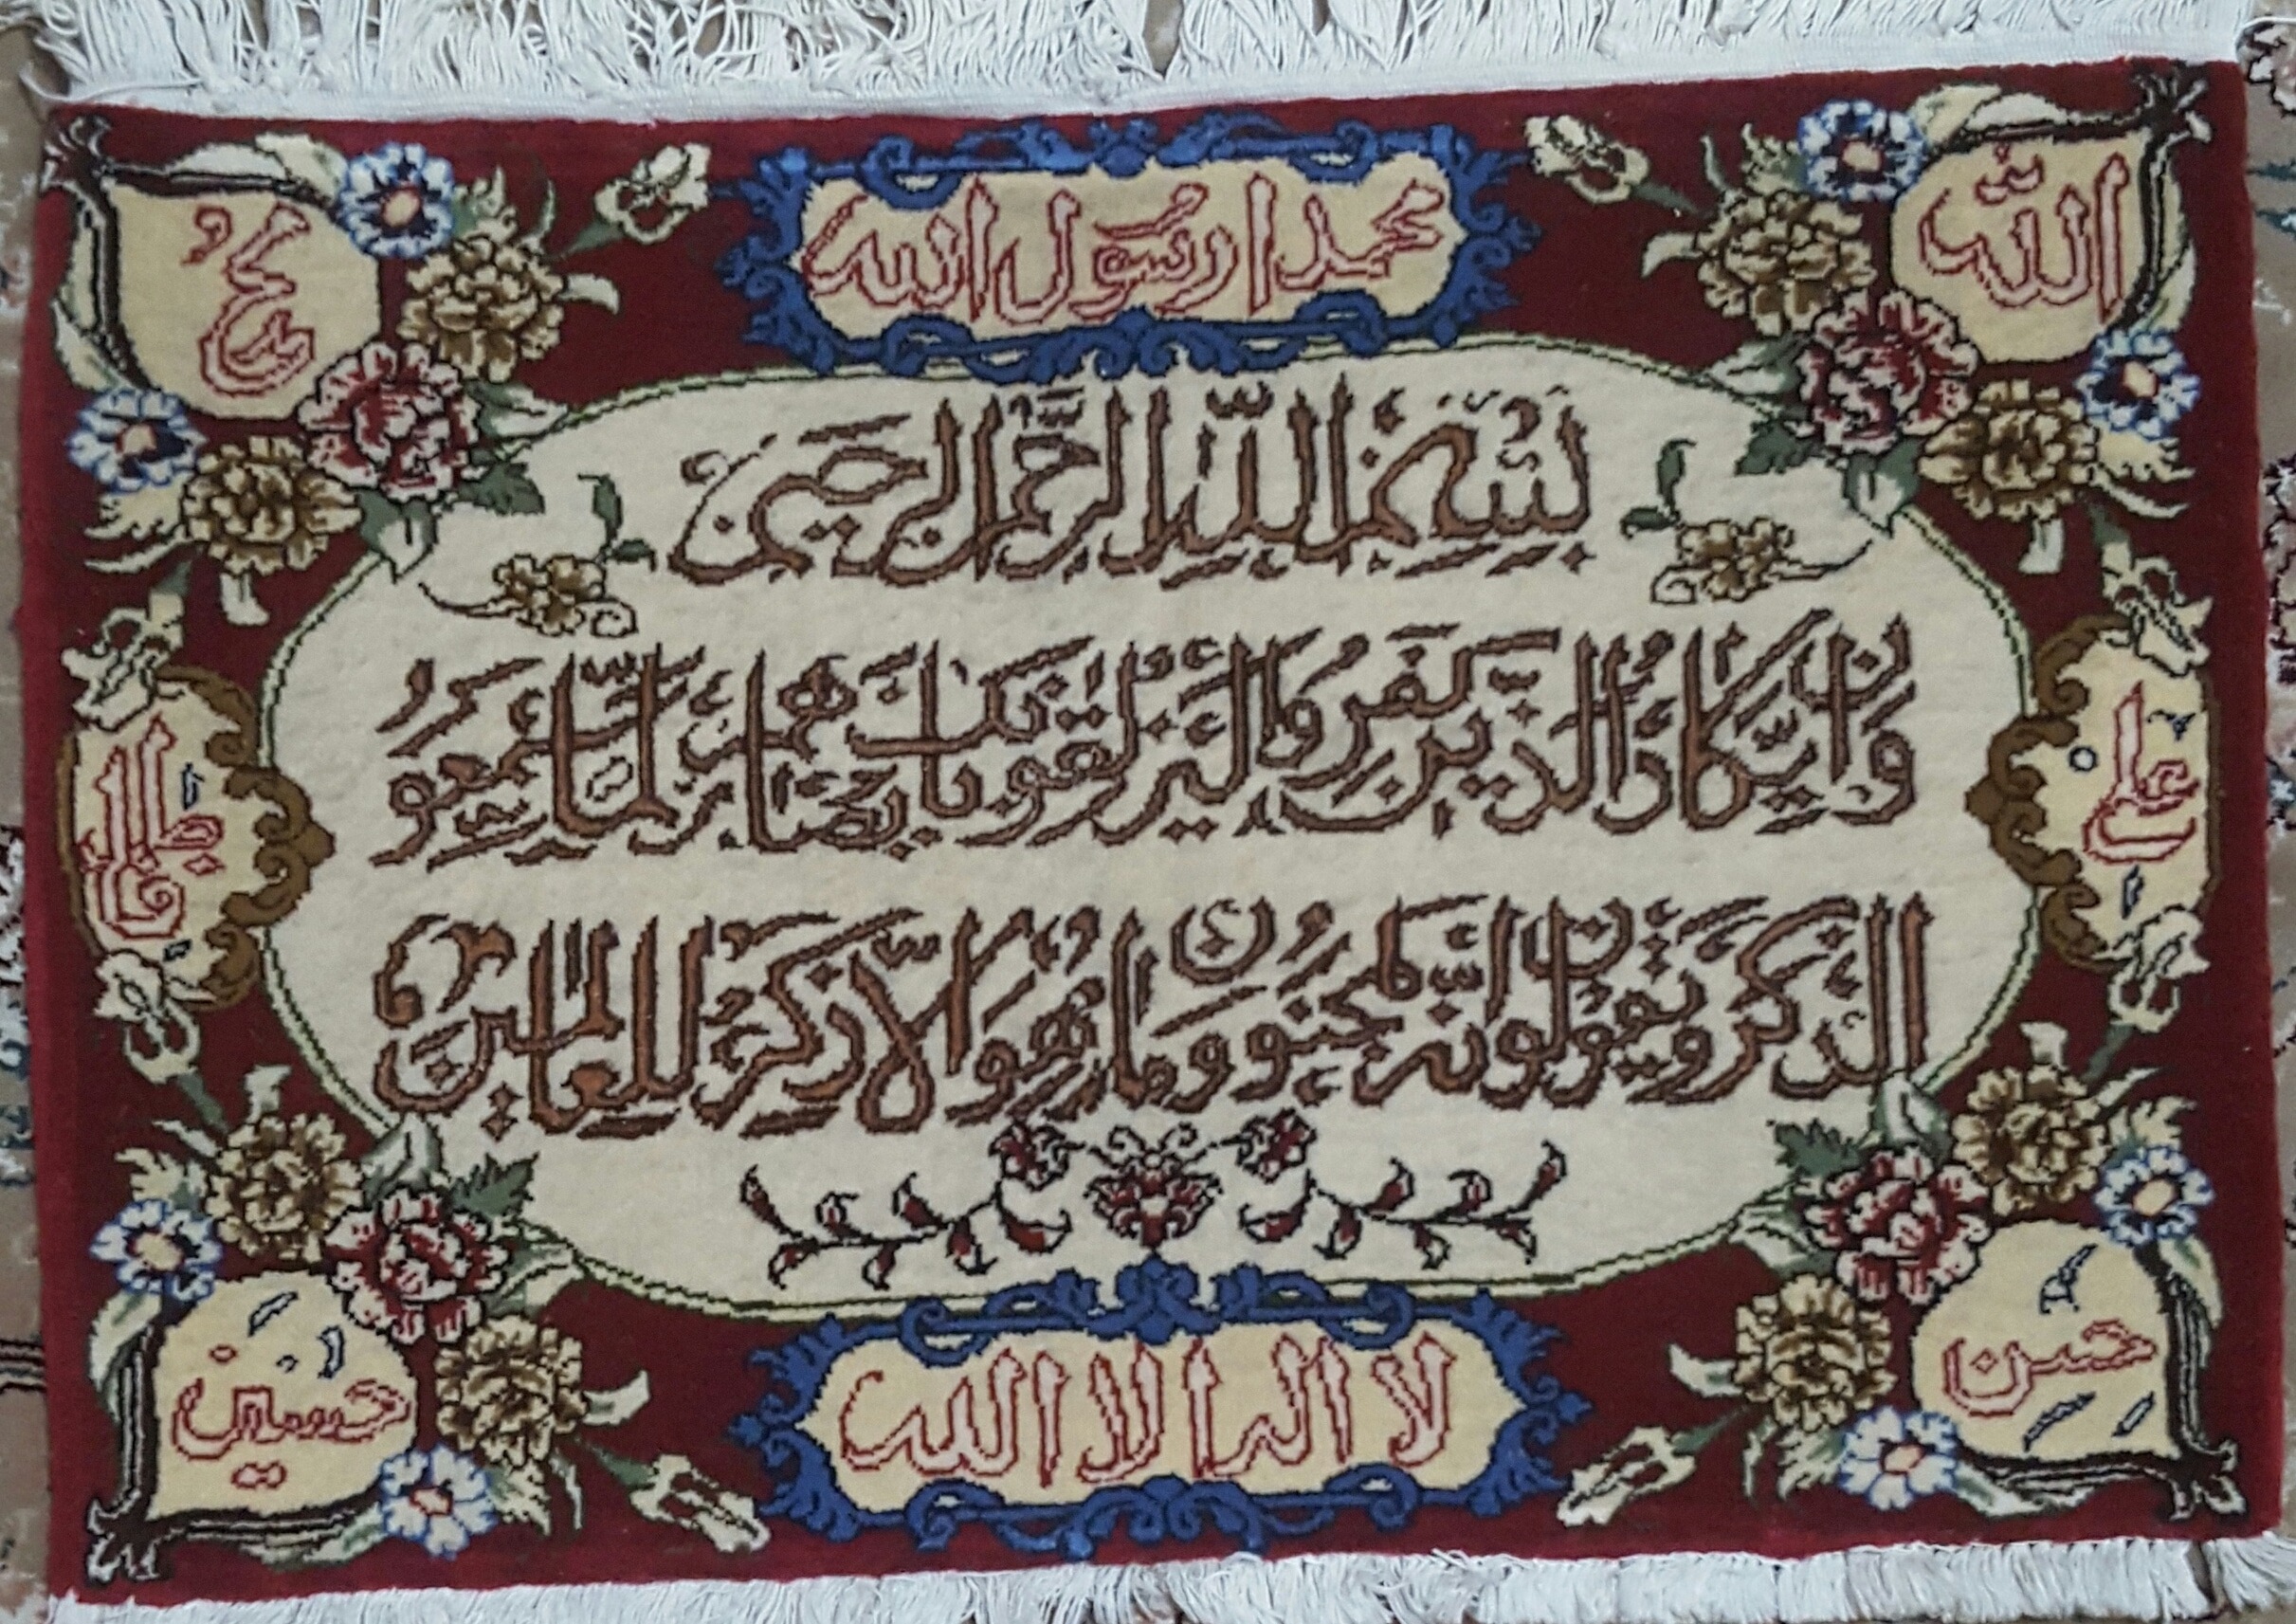 الله
محمدا رسول الله
محمد
بسم الله الرحمن الرحیم
وان یکاد الذین کفروا لیزلقونک بابصارهم لما سمعوا
الذکر ویقولون انه لمجنون وما هو الا ذکر للعالمین
علی
فاطمه
حسن
لا اله الا الله
حسین